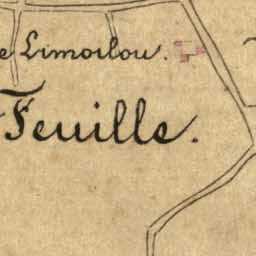 e Limoilou.
Feuille.